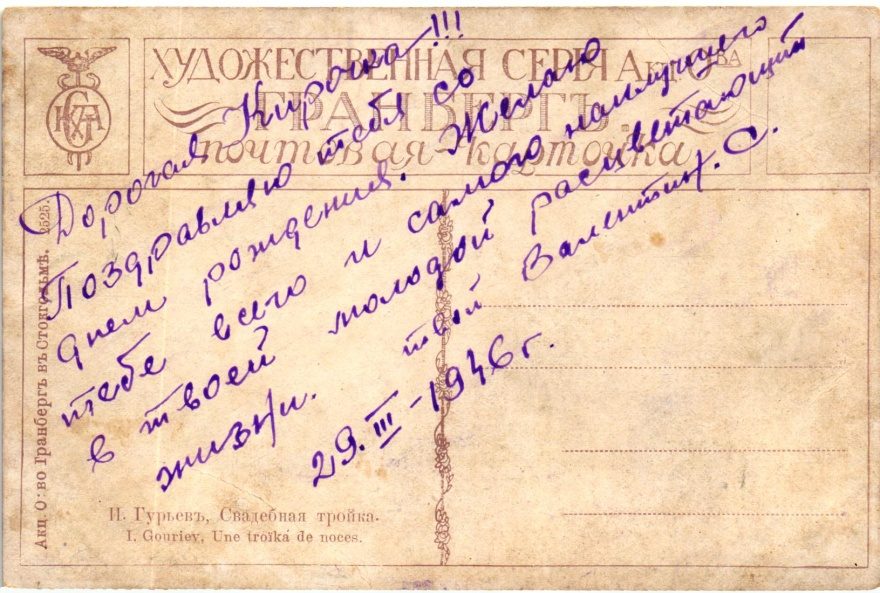 ХУДОЖЕСТВЕННАЯ СЕРІЯ Акц. О-ВА
ГРАНБЕРГЪ.
почтовая-карточка
Дорогая Кирочка-!!!
Поздравляю тебя со
днем рождения. Желаю
тебе всего и самого наилучшего
в твоей молодой расцветающей
жизни. твой Валентин. С.
29. III-1946 г.
Акц. О:во Гранбергъ въ Стокгольмѣ. 2525.
И. Гурьевъ, Свадебная тройка.
I. Gouriev, Une troïka de noces.